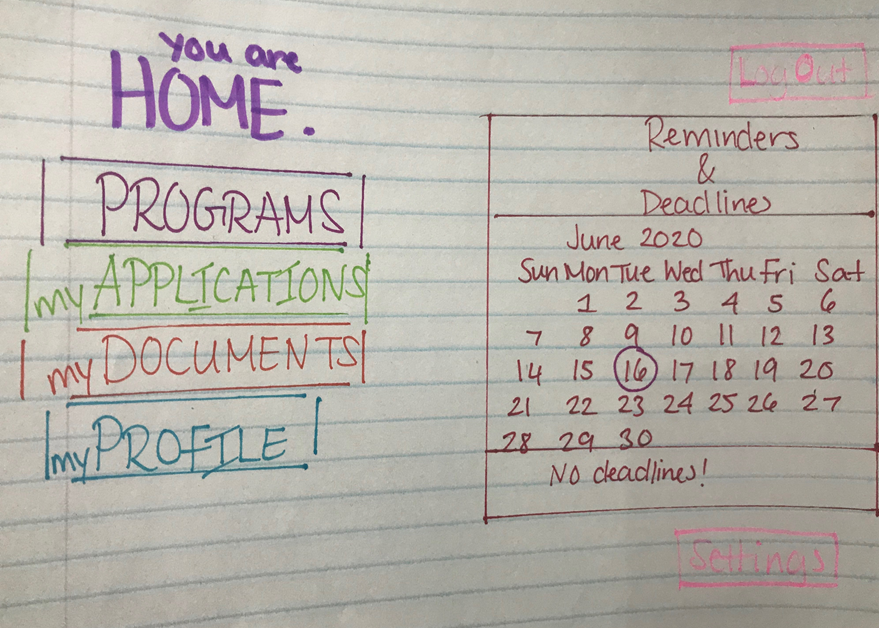 you are
HOME.
PROGRAMS
my APPLICATIONS
my DOCUMENTS
my PROFILE
Log Out
Reminders
&
Deadlines
June 2020
Sun Mon Tue Wed Thu Fri Sat
1 2 3 4 5 6
7 8 9 10 11 12 13
14 15 16 17 18 19 20
21 22 23 24 25 26 27
28 29 30
No deadlines!
Settings